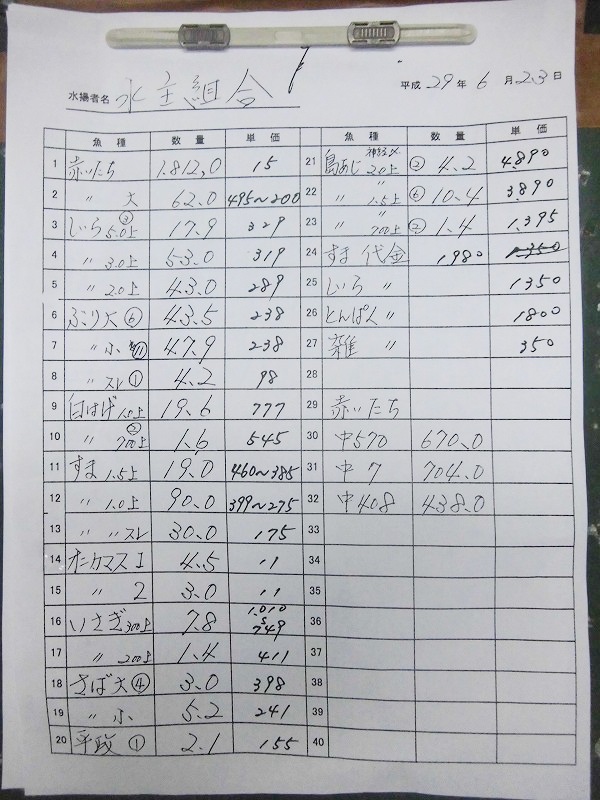 水揚者名 水主組合 平成 29年 6月 23日
魚種 数量 単価
1 赤いたち 1.812,0 15
2 〃 大 62.0 495~200
3 しいら 5.0上 ③ 17.9 329
4 〃 3.0上 53.0 319
5 〃 2.0上 43.0 289
6 ぶり大 ⑥ 43.5 238
7 〃 小 ⑪ 47.9 238
8 〃 スレ ① 4.2 98
9 白はげ 1.0上 19.6 777
10 〃 700上 ② 1.6 545
11 すま 1.5上 19.0 460~385
12 〃 1.0上 90.0 399~275
13 〃 〃 スレ 30.0 175
14 オニカマス 1 4.5 11
15 〃 2 3.0 11
16 いさぎ 300上 7.8 1,010 S 749
17 〃 200上 1.4 411
18 さば大 ④ 3.0 398
19 〃 小 5.2 241
20 平政 ① 2.1 155
魚種 数量 単価
21 島あじ 神経〆 2.0上 ② 4.2 4.890
22 〃 〃 1.5上 ⑥ 10.4 3.890
23 〃 〃 700上 ② 1.4 1.395
24 すま 代金 1980 1350
25 しいら 〃 1350
26 とんぱく 〃 1800
27 雑 〃 350
28
29 赤いたち
30 中570 670.0
31 中7 704.0
32 中408 438.0
33
34
35
36
37
38
39
40